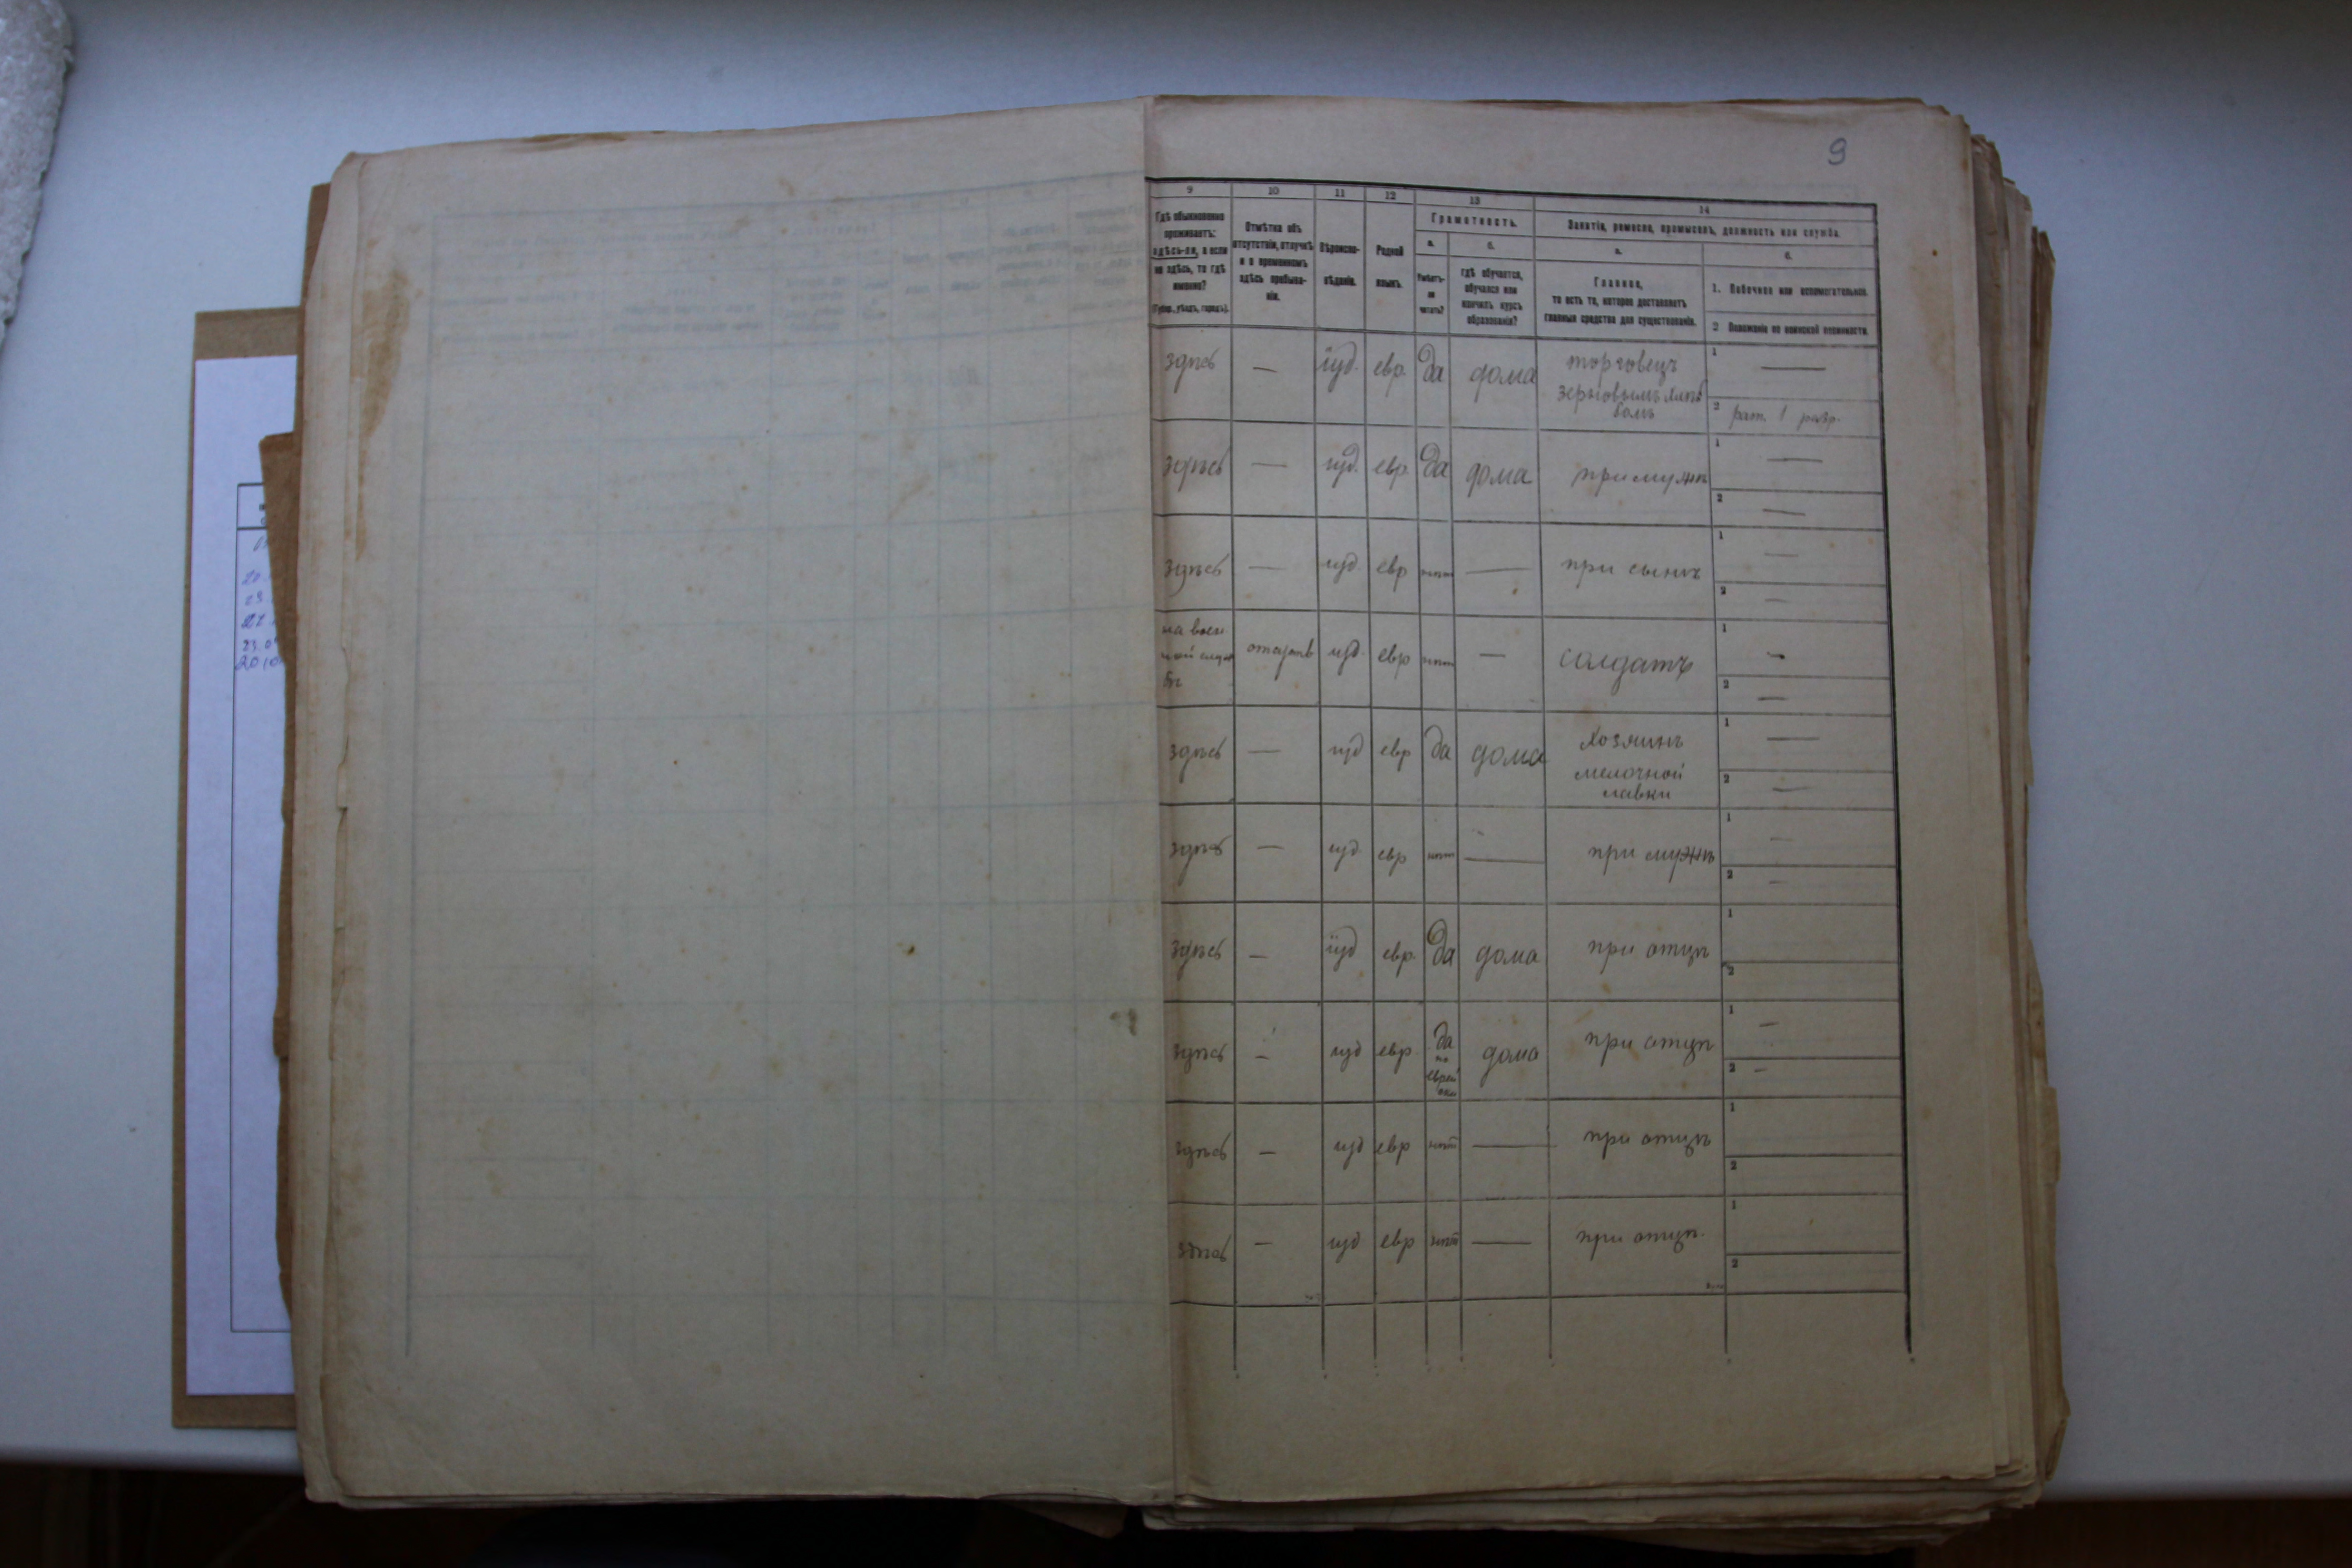 9
9 10 11 12 13 14
Гдѣ обыкновенно
проживаетъ:
здѣсь-ли, а если
не здѣсь, то гдѣ
именно?
(Губер., уѣздъ, городъ).
Отмѣтка объ
отсутствіи, отлучкѣ
и о временномъ
здѣсь пребыва-
ніи.
Вѣроиспо-
вѣданіе.
Родной
языкъ.
Грамотность.
а. б.
Умѣетъ-
ли
читать?
гдѣ обучается,
обучался или
кончилъ курсъ
образованія?
Занятіе, ремесло, промыселъ, должность или служба.
а. б.
Главное,
то есть то, которое доставляетъ
главныя средства для существованія.
1. Побочное или вспомогательное.
2 Положеніе по воинской повинности.
здѣсь — іуд. евр. да дома торговецъ
зерновымъ хлѣ
бомъ
1 —
2 рат. 1 разр.
здѣсь — іуд. евр. да дома при мужѣ
1 —
2 —
здѣсь — іуд. евр нѣт — при сынѣ
1 —
2 —
на воен
ной служ
бѣ
отсутств іуд. евр нѣт — солдатъ
1 —
2 —
здѣсь — іуд евр да дома хозяинъ
мелочной
лавки
1 —
2 —
здѣсь — іуд. евр нѣт — при мужѣ
1 —
2 —
здѣсь — іуд евр. да дома при отцѣ
1
2
здѣсь — іуд евр. да
по
еврей
ски
дома при отцѣ
1 —
2 —
здѣсь — іуд евр нѣт — при отцѣ
1
2
здѣсь — іуд евр нѣт — при отцѣ.
1
2